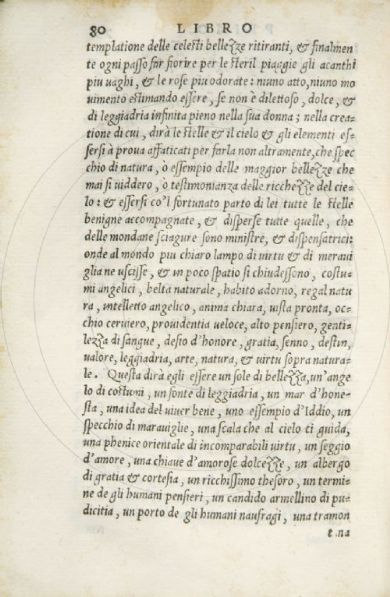 80 LIBRO
templatione delle celesti bellezze ritiranti, & finalmen
te ogni passo far fiorire per le steril piaggie gli acanthi
piu uaghi, & le rose piu odorate: niuno atto, niuno mo
uimento estimando essere, se non è dilettoso, dolce, &
di leggiadria infinita pieno nella sua donna; nella crea
tione di cui, dirà le stelle & il cielo & gli elementi es-
sersi à proua affaticati per farla non altramente, che spec
chio di natura, ò essempio delle maggior bellezze che
mai si uiddero, ò testimonianza delle ricchezze del cie-
lo: & essersi co'l fortunato parto di lei tutte le stelle
benigne accompagnate, & disperse tutte quelle, che
delle mondane sciagure sono ministre, & dispensatrici:
onde al mondo piu chiaro lampo di uirtu & di meraui
glia ne uscisse, & in poco spatio si chiudessono, costu-
mi angelici, beltà naturale, habito adorno, regal natu
ra, intelletto angelico, anima chiara, uista pronta, oc-
chio ceruiero, prouidentia ueloce, alto pensiero, genti-
lezza di sangue, desio d'honore, gratia, senno, destin,
ualore, leggiadria, arte, natura, & uirtu sopra natura-
le. Questa dirà egli essere un sole di bellezza, un'ange
lo di costumi, un fonte di leggiadria, un mar d'hone-
stà, una idea del uiuer bene, uno essempio d'Iddio, un
specchio di marauiglie, una scala che al cielo ci guida,
una phenice orientale di incomparabili uirtu, un seggio
d'amore, una chiaue d'amorose dolcezze, un albergo
di gratia & cortesia, un ricchissimo thesoro, un termi-
ne de gli humani pensieri, un candido armellino di pu-
dicitia, un porto de gli humani naufragi, una tramon
tana